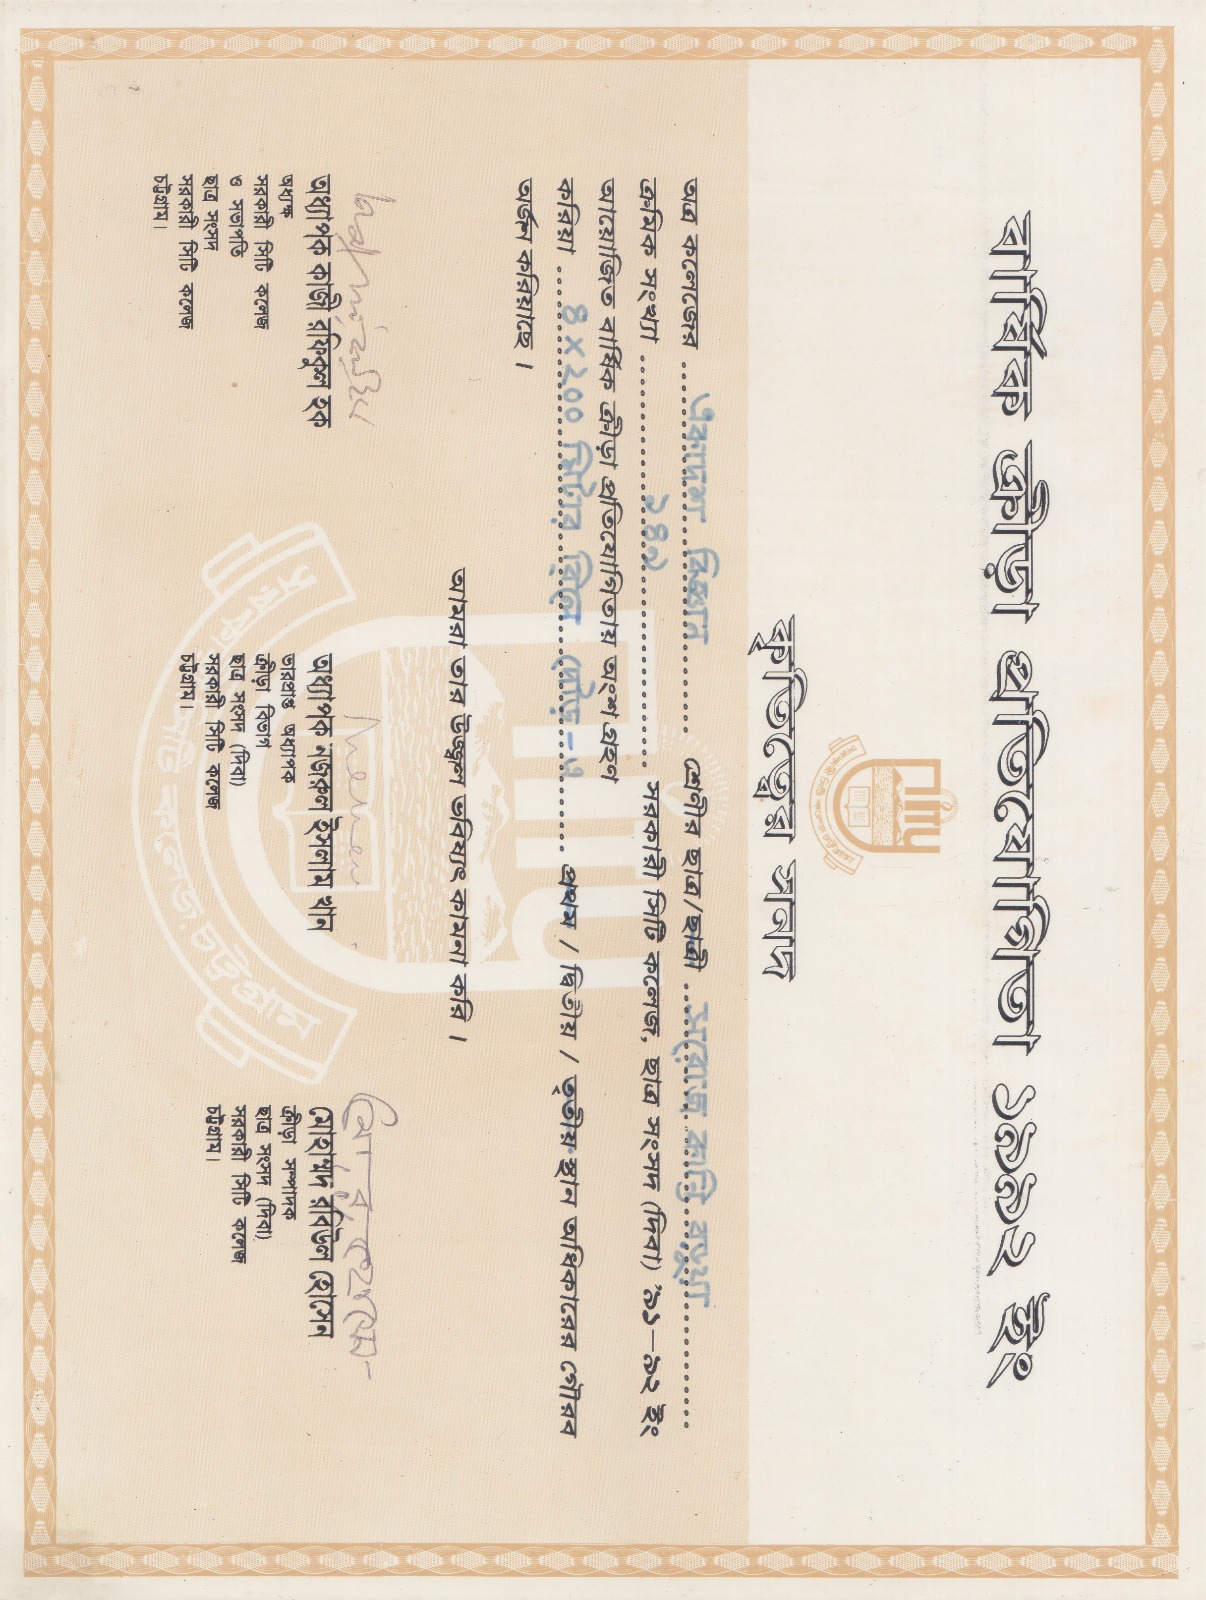 বার্ষিক ক্রীড়া প্রতিযোগিতা ১৯৯২ ইং
সরকারী সিটি কলেজ, চট্টগ্রাম
কৃতিত্বের সনদ
অত্র কলেজের একাদশ বিজ্ঞান শ্রেণীর ছাত্র/ছাত্রী সরোজ কান্তি বড়ুয়া
ক্রমিক সংখ্যা ২৪৯ সরকারী সিটি কলেজ, ছাত্র সংসদ (দিবা) '৯১—৯২ ইং
আয়োজিত বার্ষিক ক্রীড়া প্রতিযোগিতায় অংশ গ্রহণ
করিয়া ৪×২০০ মিটার রিলে দৌড়-এ প্রথম / দ্বিতীয় / তৃতীয় স্থান অধিকারের গৌরব
অর্জন করিয়াছে ।
আমরা তার উজ্জ্বল ভবিষ্যৎ কামনা করি ।
মোঃ রবিউল হোসেন
অধ্যাপক কাজী রফিকুল হক
অধ্যক্ষ
সরকারী সিটি কলেজ
ও সভাপতি
ছাত্র সংসদ
সরকারী সিটি কলেজ
চট্টগ্রাম।
অধ্যাপক নজরুল ইসলাম খান
ভারপ্রাপ্ত অধ্যাপক
ক্রীড়া বিভাগ
ছাত্র সংসদ (দিবা)
সরকারী সিটি কলেজ
চট্টগ্রাম।
মোহাম্মদ রবিউল হোসেন
ক্রীড়া সম্পাদক
ছাত্র সংসদ (দিবা)
সরকারী সিটি কলেজ
চট্টগ্রাম।
সরকারী সিটি কলেজ, চট্টগ্রাম